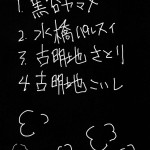 1 黒谷ヤマメ
2. 水橋パルスィ
3 古明地さとり
4 古明地こいし